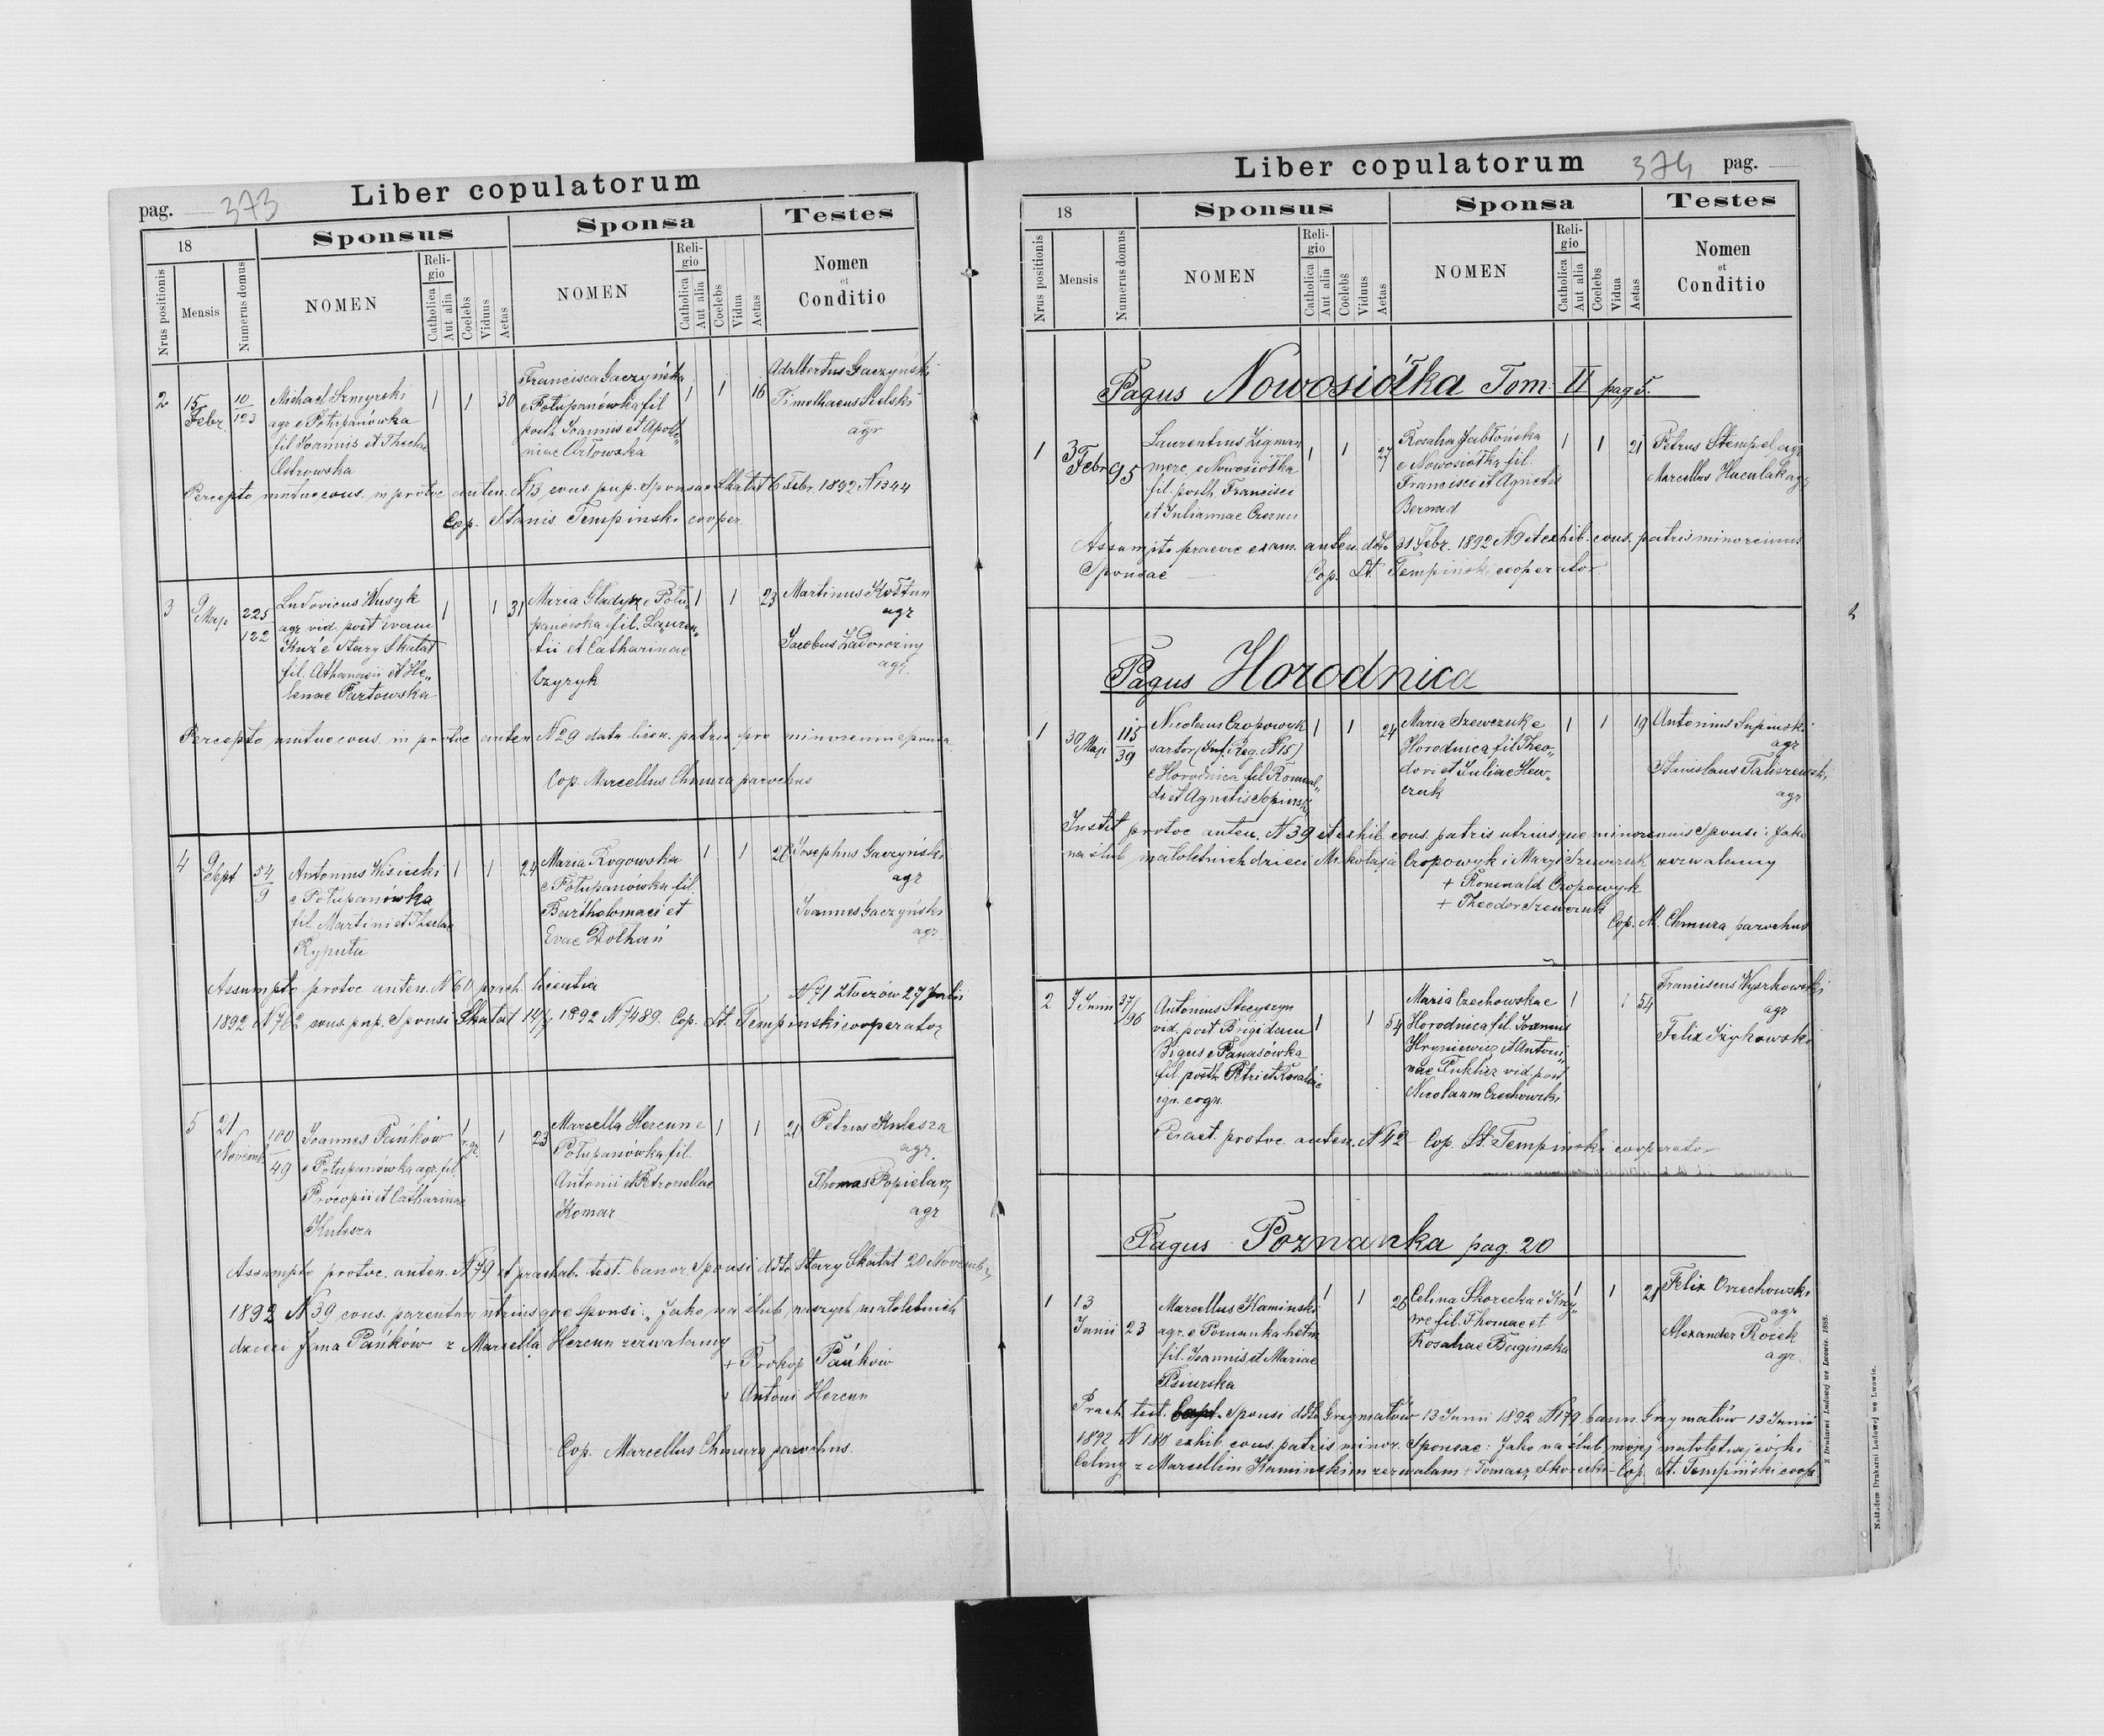 pag. 373 Liber copulatorum
18 Sponsus Sponsa Testes
Nrus positionis Mensis Numerus domus NOMEN Religio Catholica Aut alia Coelebs Viduus Aetas NOMEN Religio Catholica Aut alia Coelebs Vidua Aetas Nomen et Conditio
2 15 Febr. 10/123 Michael 1 1 30 Francisca Gaczyńska 1 1 16 Adalbertus Gaczyński
agr e Połupanówka e Połupanówka fil Timothaeus Sielski
fil Joannis et Theclae posth Joannis et Apollo„ agr
Ostrowska niae Orłowska
Percepto mutuo cons. in protoc anten. N 13, cons. pup. Sponsae Skałat 6 Febr. 1892 N 1344
Cop. Stanis Tempinski cooper
3 9 Maji 225 122 Ludovicus Wusyk 1 1 31 Maria Gładysz e Połu„ 1 1 23 Martinus Kołtun
agr vid. post Evam panówka fil. Lauren„ agr
Kuź e Stary Skałat tii et Catharinae Jacobus Zadorozny
fil. Athanasii et He„ Czyryk agr.
lenae Partowska
Percepto mutuo cons. in protoc anten N 29 data licen. patris pro minorenni sponsa
Cop. Marcellus Chmura parochus
4 9 Sept 54/9 Antonius Wisicki 1 1 24 Maria Rogowska 1 1 Josephus Gaczyński
e Połupanówka e Połupanówka fil agr
fil. Martini et Theclae Bartholomaei et Joannes Gaczyński
Ryputa Evae Dolhań agr.
Assumpto protoc anten. N 60 praeh. licentia N 71 27 Julii
1892 N 762 cons. pup. Sponsi Skałat 14/7 1892 N 7489. Cop. St. Tempinski cooperator
5 21 Novemb 100/49 Joannes Pańków 1 r. gr. 1 23 Marcella Hercun e 1 1 21 Petrus Kulesza
e Połupanówka agr. fil Połupanówka fil. agr.
Procopii et Catharinae Antonii et Petronellae Thomas Popielarz
Kulesza Komar agr
Assumpto protoc. anten. N 79 et praehab. test. bannor. Sponsi ddto Stary Skałat 20 Novembr,
1892 N 39 cons. parentum utriusque Sponsi: „Jako na ślub naszych małoletnich
dzieci Jana Pańków z Marcellą Hercun zezwalamy
+ Prokop Pańków
+ Antoni Hercun
Cop. Marcellus Chmura parochus.
Liber copulatorum 374 pag.
18 Sponsus Sponsa Testes
Nrus positionis Mensis Numerus domus NOMEN Religio Catholica Aut alia Coelebs Viduus Aetas NOMEN Religio Catholica Aut alia Coelebs Vidua Aetas Nomen et Conditio
Pagus Nowosiółka Tom: II pag 5.
1 3 Febr 95 Laurentius Zigman 1 1 27 Rosalia Jabłońska 1 1 21 Petrus Stempel agr
merc. e Nowosiółka e Nowosiółka fil. Marcellus Huculak agr
fil. posth Francisci Francisci et Agnetis
et Juliannae Bernad
Assumpto praevie exam. anten. ddto 31 Febr. 1892 N 9 et exhib. cons. patris minorennis
Sponsae Cop. St. Tempinski cooperator
Pagus Horodnica
1 30 Maji 115/39 Nicolaus Czopowyk 1 1 24 Maria Szewczuk e 1 1 19 Antonius Supinski
sartor (Inf. Reg. N 15) Horodnica fil Theo„ agr
e Horodnica fil Romual„ dori et Juliae Stanislaus Taliszewski
di et Agnetis czuk agr
Instit protoc anten. N 39 et exhib. cons. patris utriusque minorennis Sponsi: Jako
na ślub małoletnich dzieci Mikołaja Czopowyk i Maryi Szewczuk zezwalamy
+ Romuald Czopowyk
+ Theodor Szewczuk
Cop. M. Chmura parochus
2 7 Junii 37/96 Antonius 1 1 54 Maria Czechowska e 1 1 54 Franciscus
vid. post Brigidam Horodnica fil. Joannis agr
Bigus e Panasówka Hryniewicz et Antoni„ Felix Izykowski
fil posth Petri et Rosaliae nae vid. post
ign. cogn. Nicolaum Czechowski
Peract. protoc. anten. N 42 Cop. St. Tempinski cooperator
Pagus Poznanka pag. 20
1 13 Junii 23 Marcellus Kaminski 1 1 26 Celina Skorecka e Krzy„ 1 1 21 Felix Orzechowski
agr. e Poznanka hetm we fil. Thomae et agr
fil. Joannis et Mariae Rosaliae Baginska Alexander Rozek
Psiurska agr.
Praeh. test. Sponsi ddto Grzymałów 13 Junii 1892 N 179 bann. Grzymałów 13 Junii
1892 N 180 exhib. cons. patris minor. Sponsae: Jako na ślub mojej małoletniej córki
Celiny z Marcellim Kaminskim zezwalam + Tomasz Skorecki - Cop. St. Tempiński coop.
Z Drukarni Ludowej we Lwowie. 1888.
Nakładem Drukarni Ludowej we Lwowie.